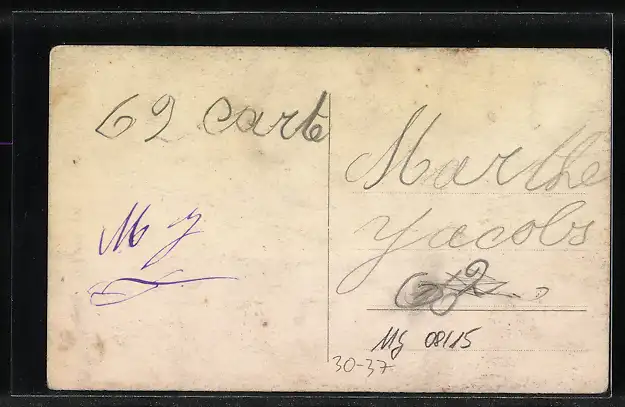 62 carte
M y
Marthe
Jacobs
62
MG 08/15
30-37